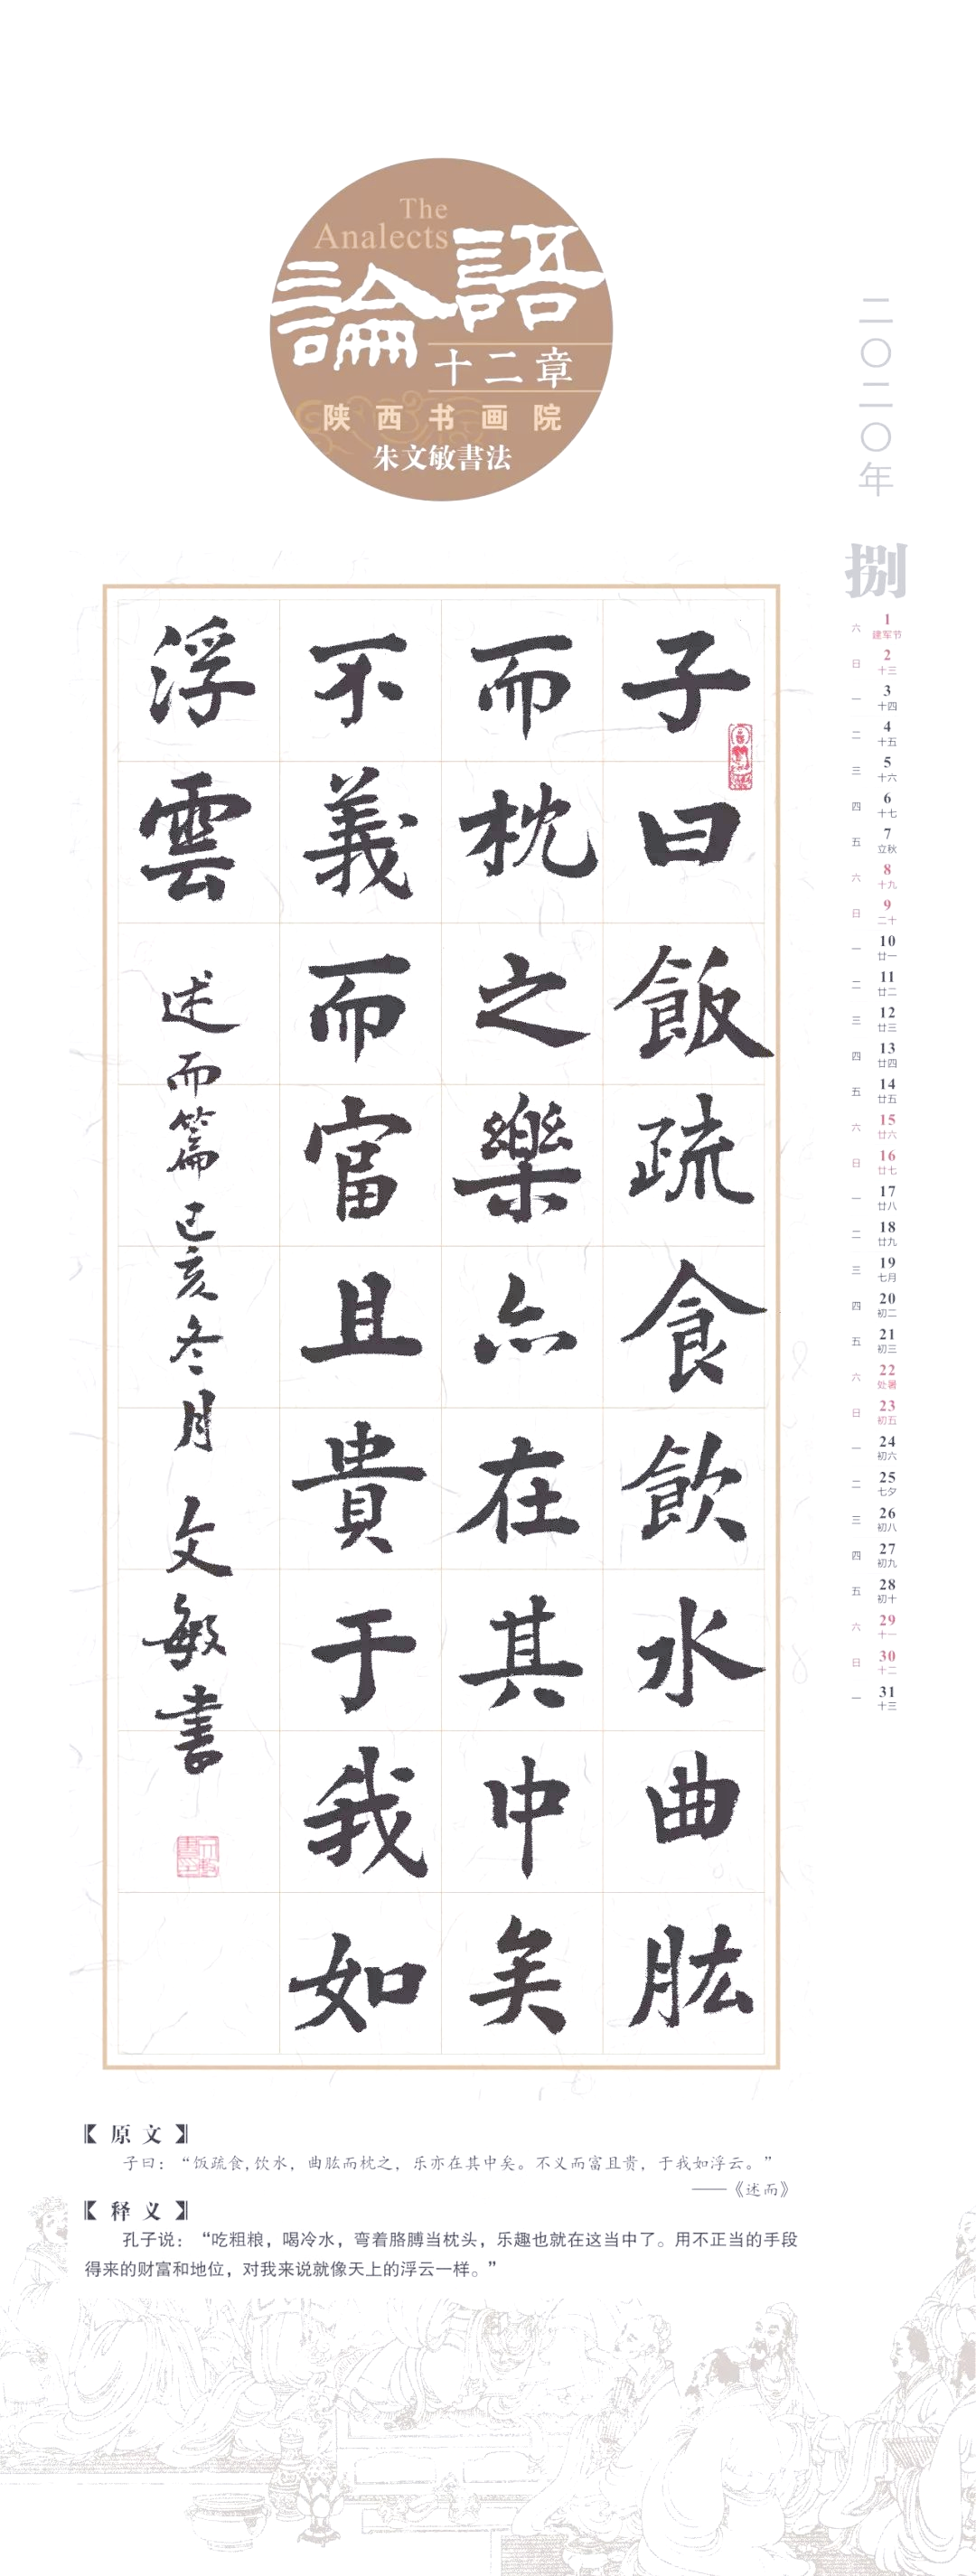 The
Analects
論語
十二章
陕西书画院
朱文敏書法
二〇二〇年
捌
六 1 建军节
日 2 十三
一 3 十四
二 4 十五
三 5 十六
四 6 十七
五 7 立秋
六 8 十九
日 9 二十
一 10 廿一
二 11 廿二
三 12 廿三
四 13 廿四
五 14 廿五
六 15 廿六
日 16 廿七
一 17 廿八
二 18 廿九
三 19 七月
四 20 初二
五 21 初三
六 22 处暑
日 23 初五
一 24 初六
二 25 七夕
三 26 初八
四 27 初九
五 28 初十
六 29 十一
日 30 十二
一 31 十三
子曰飯疏食飲水曲肱
而枕之樂亦在其中矣
不義而富且貴于我如
浮雲
述而篇己亥冬月文敏書
【原文】
子曰：“饭疏食,饮水，曲肱而枕之，乐亦在其中矣。不义而富且贵，于我如浮云。”
——《述而》
【释义】
孔子说：“吃粗粮，喝冷水，弯着胳膊当枕头，乐趣也就在这当中了。用不正当的手段
得来的财富和地位，对我来说就像天上的浮云一样。”